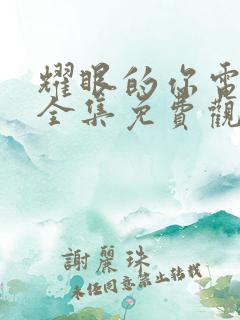 耀眼的你電
全集免費觀
謝麗珠
未經同意禁止轉載